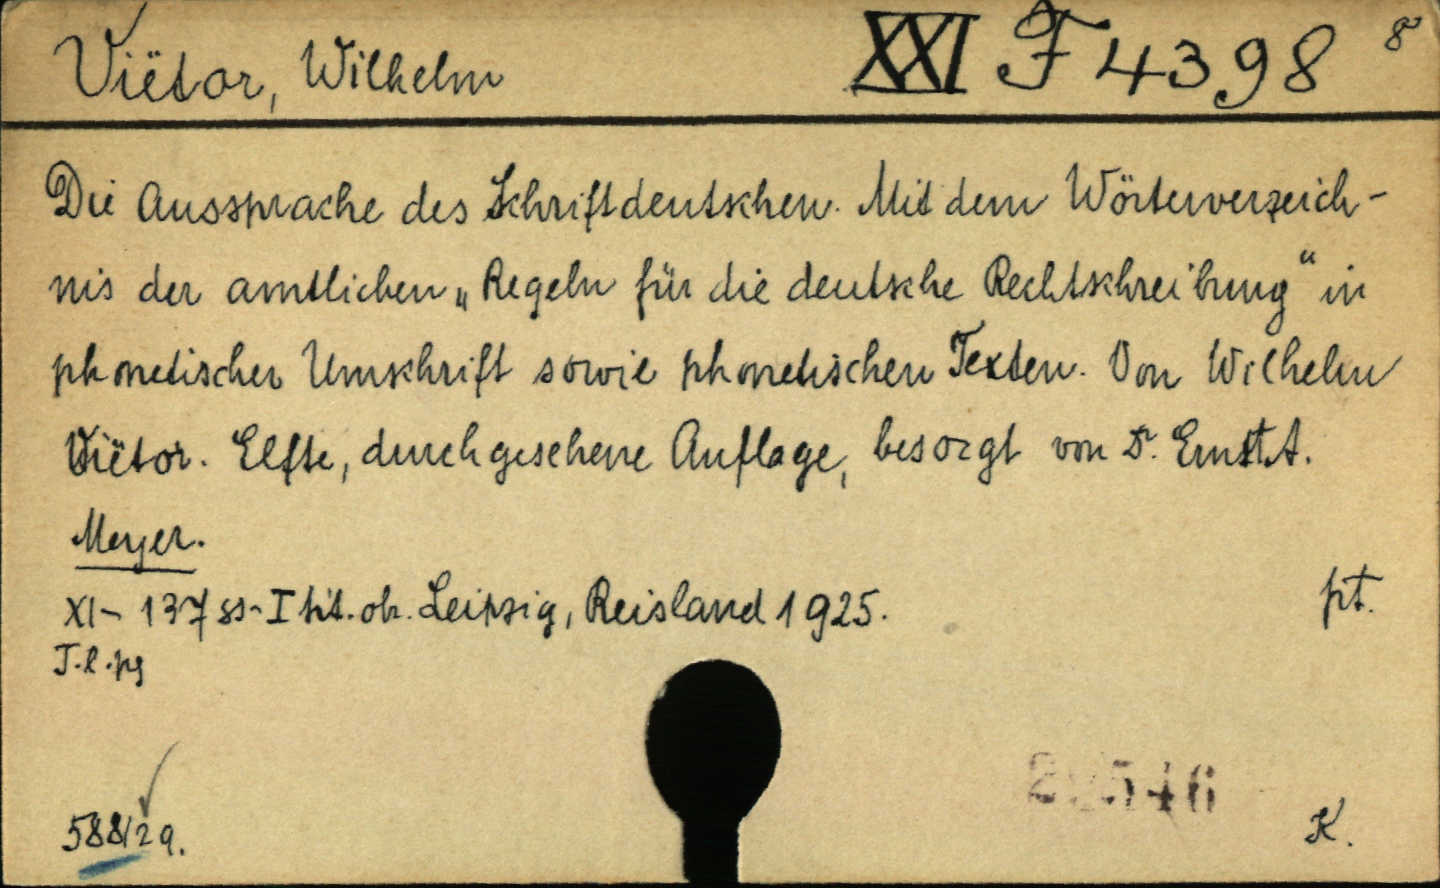 Viëtor, Wilhelm XXI F 4398 8°
Die Aussprache des Schriftdeutschen. Mit dem Wörterverzeich-
nis der amtlichen „Regeln für die deutsche Rechtschreibung“ in
phonetischer Umschrift sowie phonetischen Texten. Von Wilhelm
Viëtor. Elfte, durchgesehene Auflage, besorgt von Dr. Ernst A.
Meyer.
XI - 137 ss - I tit. ob. Leipsig, Reisland 1925. pt.
T. l. pg
588/29. K.